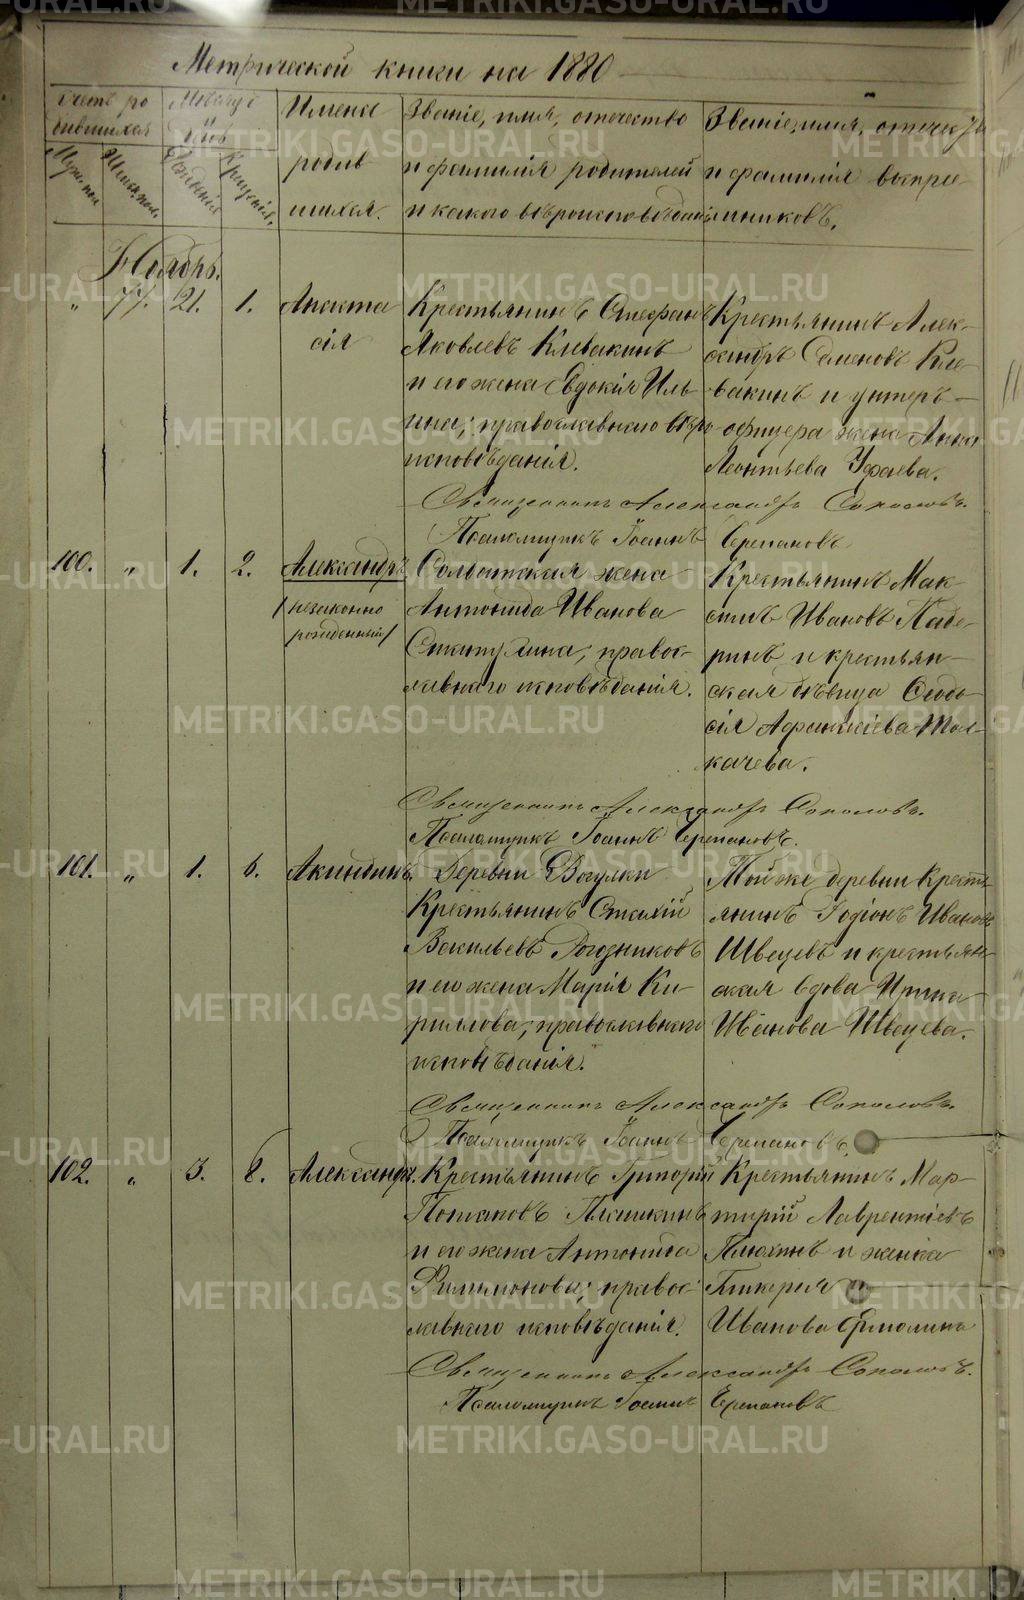 Метрической книги на 1880
Счетъ ро
дившихся
Мужеска
Женска
Мѣсяцъ
и
день
Рожденія
Крещенія
Имена
родив
шихся.
Званіе, имя, отечество
и фамилія родителей
и какого вѣроисповѣданія
Званіе, имя, отечество
и фамилія воспріе-
мниковъ.
Ноябрь.
" 77. 21. 1.
Анаста
сія
Крестьянинъ Стефанъ
Яковлевъ Клевакинъ
и его жена Евдокія Иль
ина; православнаго вѣро
исповѣданія.
Крестьянинъ Алек-
сандръ Семеновъ Кле-
вакинъ и унтеръ-
офицера жена Анна
Леонтьева Уфаева.
Священникъ Александръ Соколовъ.
Псаломщикъ Іоаннъ Черепановъ
100. " 1. 2.
Александръ
/незаконно
рожденный/
Солдатская жена
Антонида Иванова
православнаго исповѣданія.
Крестьянинъ Мак-
симъ Ивановъ Паде-
ринъ и крестьян-
ская дѣвица Ѳеодо-
сія Афанасіева Тол-
качева.
Священникъ Александръ Соколовъ.
Псаломщикъ Іоаннъ Черепановъ.
101. " 1. 6.
Акиндинъ.
Деревни Вогулки
Крестьянинъ Стахій
Васильевъ Рогозниковъ
и его жена Марія Ки-
рилова; православнаго
исповѣданія.
Той же деревни Кресть-
янинъ Родіонъ Ивановъ
Швецевъ и крестьян-
ская вдова Ирина
Иванова Швецева.
Священникъ Александръ Соколовъ.
Псаломщикъ Іоаннъ Черепановъ.
102. " 3. 8.
Александръ.
Крестьянинъ Григорій
Потаповъ Плишкинъ
и его жена Антонида
Филимонова; правос-
лавнаго исповѣданія.
Крестьянинъ Мар-
тирій Лаврентіевъ
Плюхинъ и женка
Гликерія
Иванова Ермолина
Священникъ Александръ Соколовъ.
Псаломщикъ Іоаннъ Черепановъ
METRIKI.GASO-URAL.RU